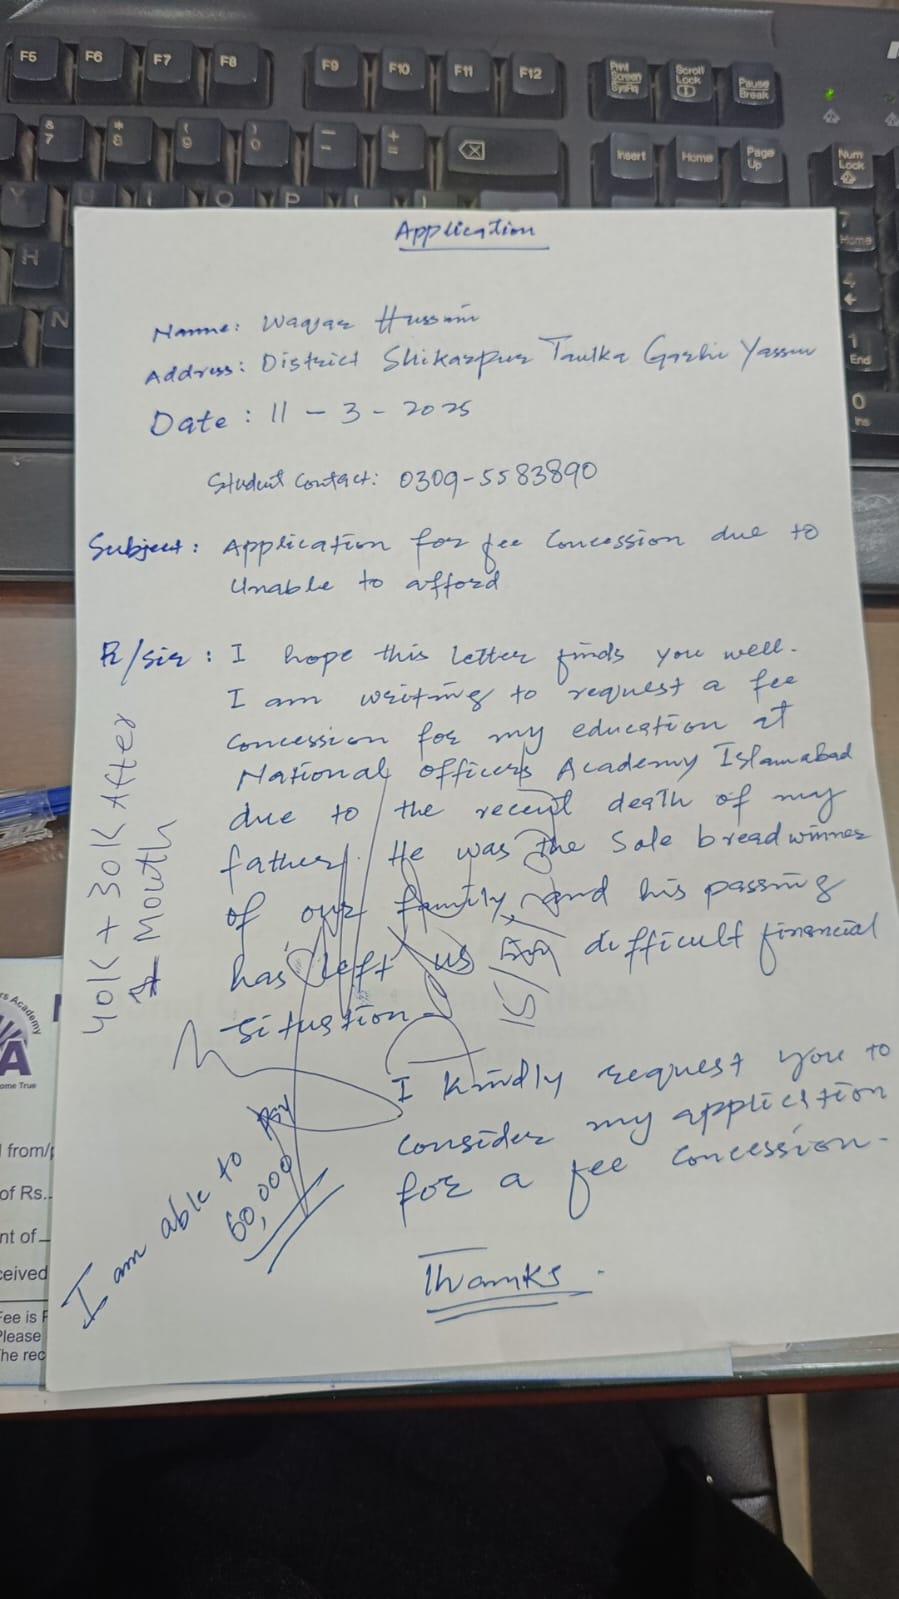 F5 F6 F7 F8 F9 F10 F11 F12 Print Screen SysRq Scroll Lock Pause Break
& 7 * 8 ( 9 ) 0 — - + = Insert Home Page Up Num Lock
Y U I O P
H
N
7 Home
4
1 End
0 Ins
Application
Namme: Waqar Hussain
Address: District Shikarpur Taulka Garhi Yassin
Date: 11 - 3 - 2025
Student Contact: 0309-5583890
Subject: Application for fee Concession due to
Unable to afford
R/sir: I hope this letter finds you well.
I am writing to request a fee
concession for my education at
National officers Academy Islamabad
due to the recent death of my
father. He was the Sole breadwinner
of our family, and his passing
has left us difficult financial
situation.
I kindly request you to
consider my application
for a fee concession.
Thanks.
40K + 30K After
Mouth
15/
I am able to pay
60,000
rs Academy
A
ome True
from/
of Rs.
nt of
ceived
Fee is
Please
he rec